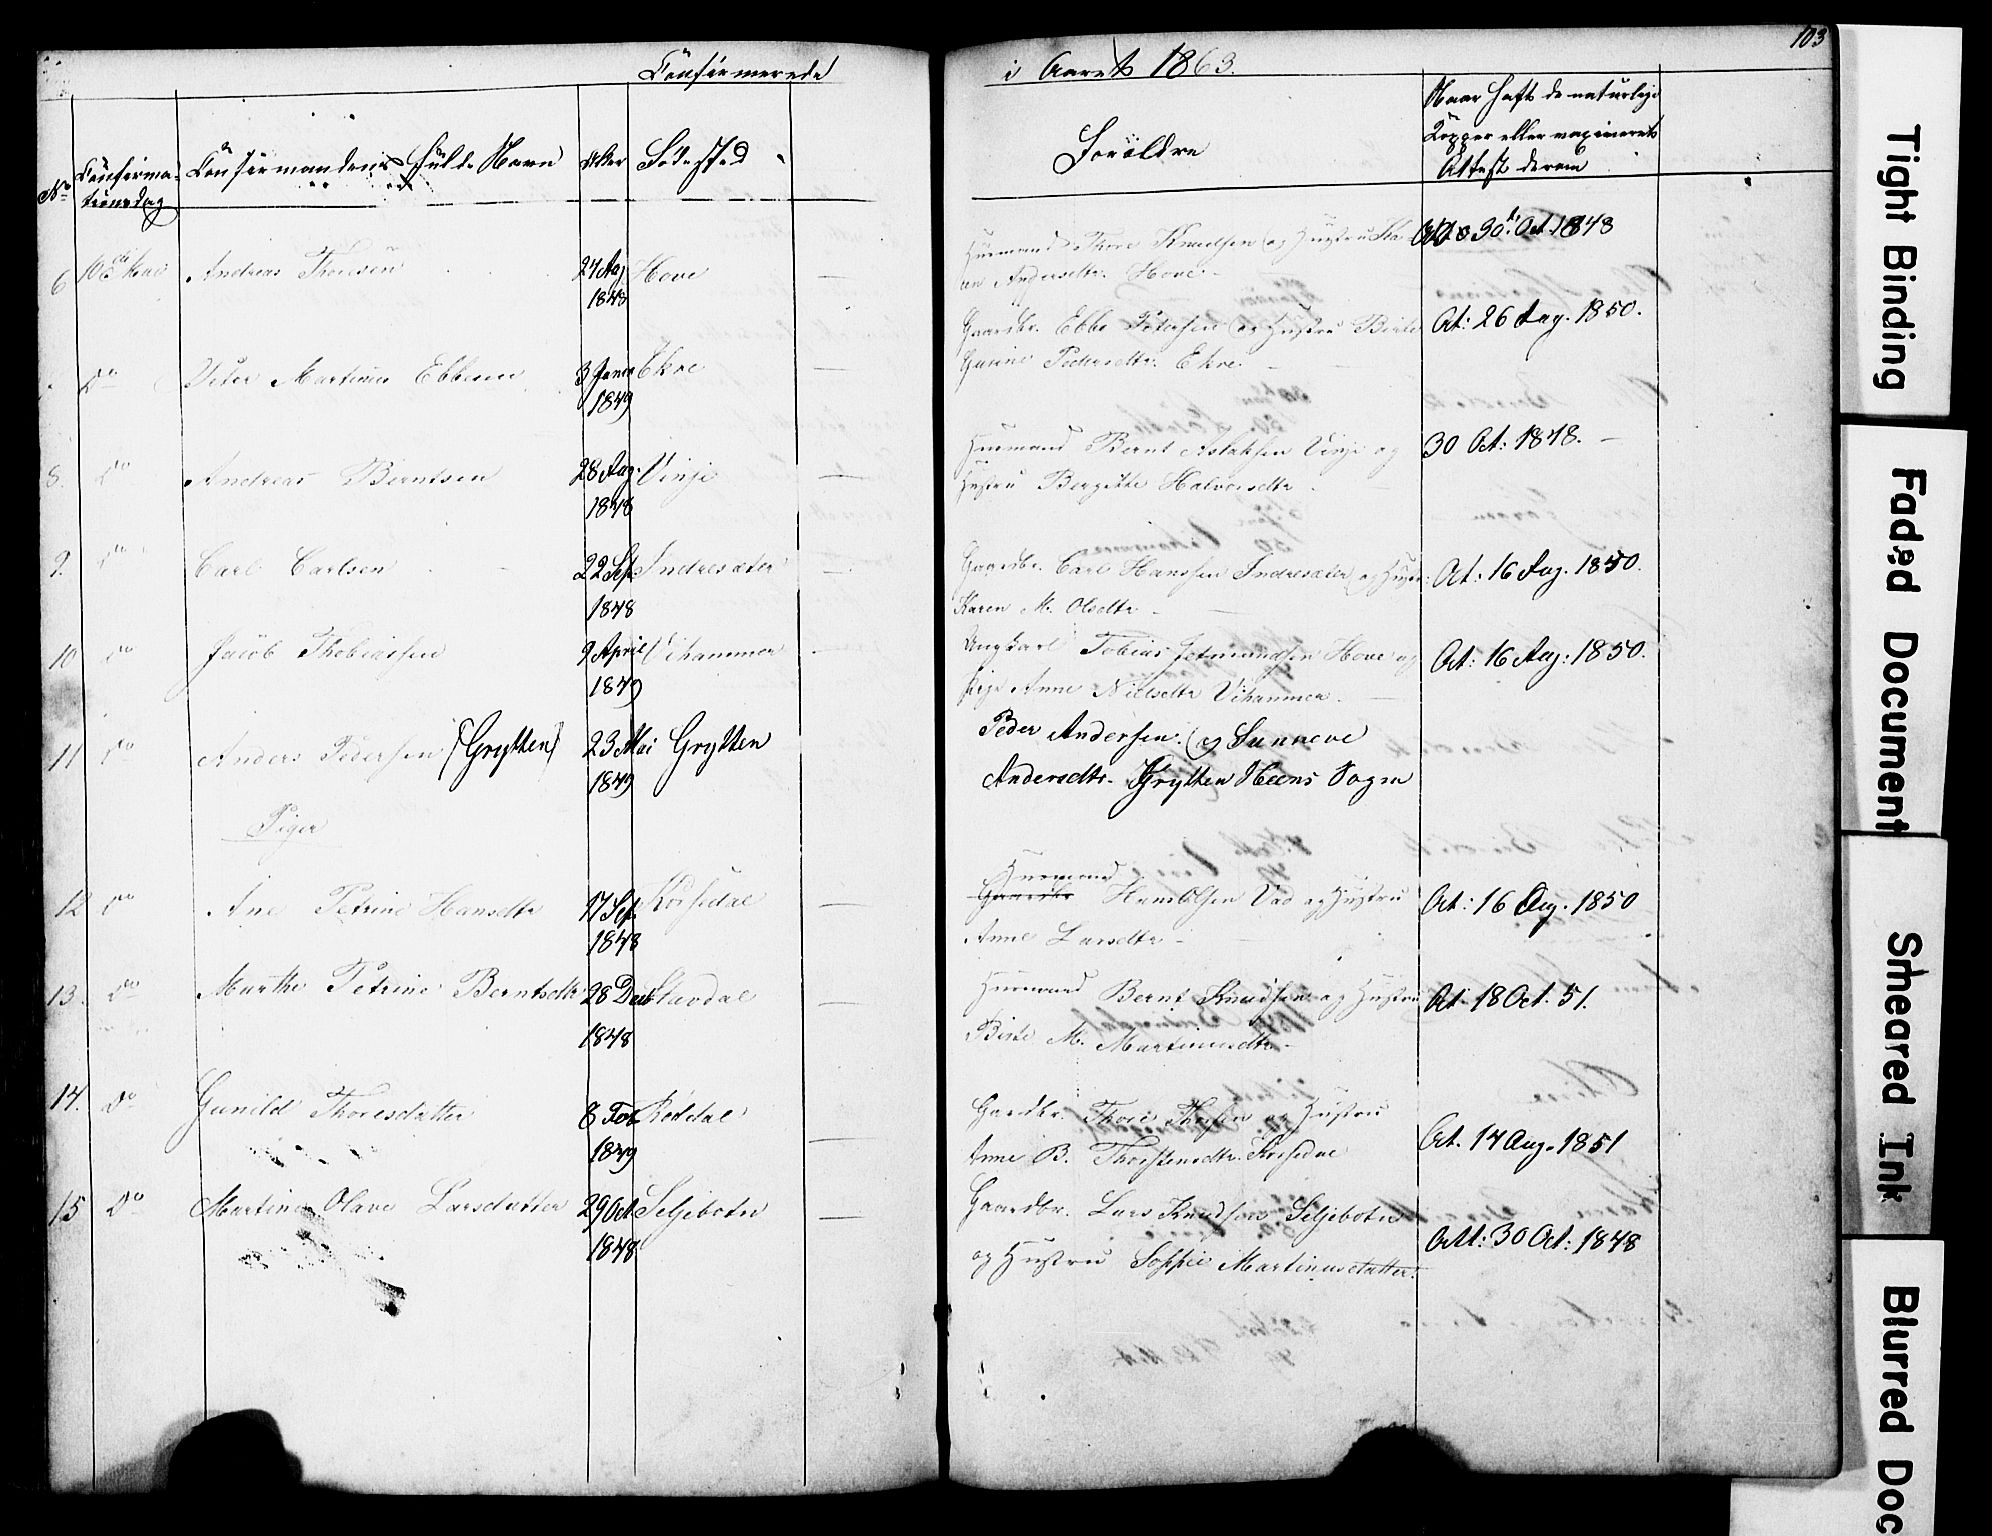 Confirmerede
i Aaret 1863.
103
No
Confirma-
tionsdag
Confirmandens fulde Navn
Alder
Födested
Forældre
Naar haft de naturlige
Kopper eller vaxineret
Attest derom
6 10de Mai Andreas Thoresen 24 Aug 1848 Hove
Huusmand Thore Knudsen og Hustru
Andersdtr. Hove
30t Oct. 1848
Do Peter Martinus Ebbesen 3 Janr 1849 Ekre
Gaardbr. Ebbe Petersen og Hustru Birte
Gurine Pedersdtr. Ekre
At: 26 Aug. 1850.
8. Do Andreas Berntsen 28 Aug. 1848 Vinje
Huusmand Bernt Aslaksen Vinje og
Hustru Bergitte Halvorsdtr
30 Oct: 1848.
9. Do Carl Carlsen 22 Sept. 1848 Indresæter
Gaardbr. Carl Hanssen Indresæter og Hustr.
Karen M. Olsdtr
At: 16 Aug. 1850.
10 Do Jacob Thobiassen 9 April 1849 Vihammer
Ungkarl Tobias Jetmundsen Hove og
Pige Anne Nielsdtr Vihammer
At: 16 Aug: 1850.
11 Do Anders Pedersen (Grytten) 23 Mai 1849 Grytten
Peder Andersen og Sunneve
Andersdtr. Grytten Heens Sogn
Piger
12 Do Ane Petrine Hansdtr 17 Sept. 1848 Korsedal
Huusmand
Gaardbr Hans Olsen Vad og Hustru
Anne Larsdtr
At: 16 Aug. 1850
13. Do Marthe Petrine Berntsdtr 28 Decb 1848 Stavdal
Huusmand Bernt Knudsen og Hustru
Birte M. Martinusdtr
At 18 Oct. 51.
14. Do Gunild Thoresdatter 8 Feb 1849 Röddal
Gaardbr. Thore Thorsen og Hustru
Anne B. Thorstensdtr. Korsedal
At. 14 Aug. 1851
15 Do Martine Olave Larsdatter 29 Oct 1848 Seljebotn
Gaardbr. Lars Knudsen Seljebotn
og Hustru Sophie Martinusdatter.
Att: 30 Oct: 1848
Tight Binding
Faded Document
Smeared Ink
Blurred Doc